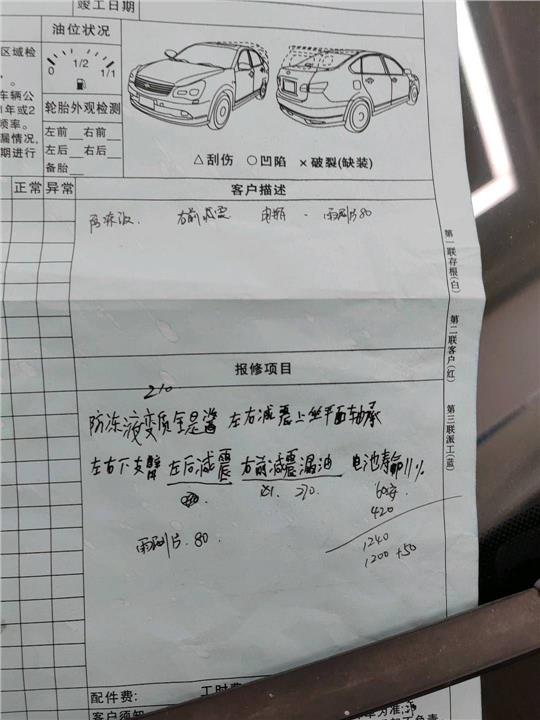 竣工日期
油位状况
区域检
0 1/2 1/1
车辆公
1年或2
频率。
漏情况,
期进行
轮胎外观检测
左前 右前
左后 右后
备胎
△刮伤 ○凹陷 ×破裂(缺装)
正常 异常
客户描述
防冻液 右前减震 电瓶 雨刷片80
第一联存根(白)
第二联客户(红)
第三联派工(蓝)
报修项目
210
防冻液变质全是酱 左右减震上坐平面轴承
左右下支臂 左后减震 右前减震漏油 电池寿命11%
270.
60安
420
雨刷片.80
1240
1200 +50
配件费: 工时费
客户须知